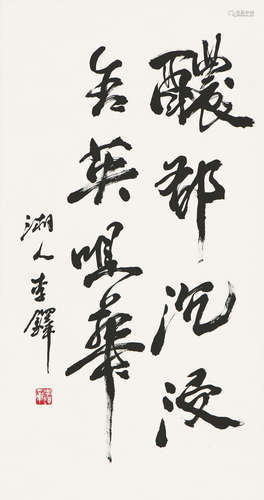 醲郁沉浸
含英咀華
湘人李鐸